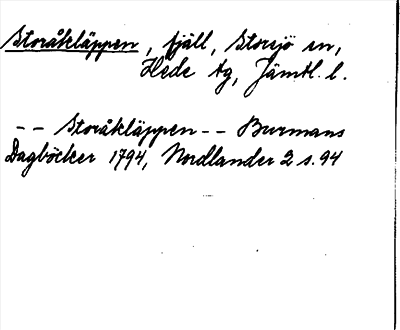 Storåkläppen, fjäll, Storsjö sn,
Hede tg, Jämtl. l.
-- Storåkläppen -- Burmans
Dagböcker 1794, Nordlander 2 s. 94